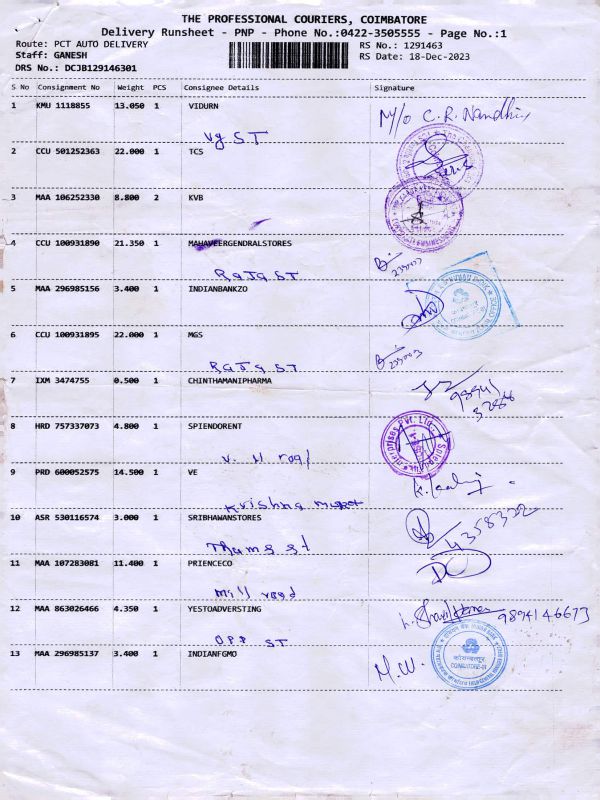 THE PROFESSIONAL COURIERS, COIMBATORE
Delivery Runsheet - PNP - Phone No.:0422-3505555 - Page No.:1
Route: PCT AUTO DELIVERY
RS No.: 1291463
Staff: GANESH
RS Date: 18-Dec-2023
DRS No.: DCJB129146301
S No Consignment No Weight PCS Consignee Details Signature
1 KMU 1118855 13.050 1 VIDURN
M/o C.R. Nandhini
Vg ST
2 CCU 501252363 22.000 1 TCS
3 MAA 106252330 8.800 2 KVB
4 CCU 100931890 21.350 1 MAHAVEERGENDRALSTORES
RaJa ST
5 MAA 296985156 3.400 1 INDIANBANKZO
6 CCU 100931895 22.000 1 MGS
RaJa ST
7 IXM 3474755 0.500 1 CHINTHAMANIPHARMA
8 HRD 757337073 4.800 1 SPIENDORENT
V. H road
9 PRD 600052575 14.500 1 VE
Krishna
10 ASR 530116574 3.000 1 SRIBHAWANSTORES
4358322
Thams st
11 MAA 107283081 11.400 1 PRIENCECO
mill road
12 MAA 863026466 4.350 1 YESTOADVERSTING
9894146673
OPP ST
13 MAA 296985137 3.400 1 INDIANFGMO
M.W.
कोयम्बत्तूर
COIMBATORE-01